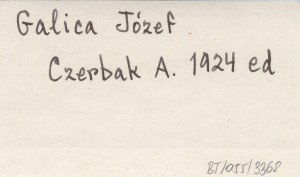 Galica Józef
Czerbak A. 1924 ed
BT/055/3368